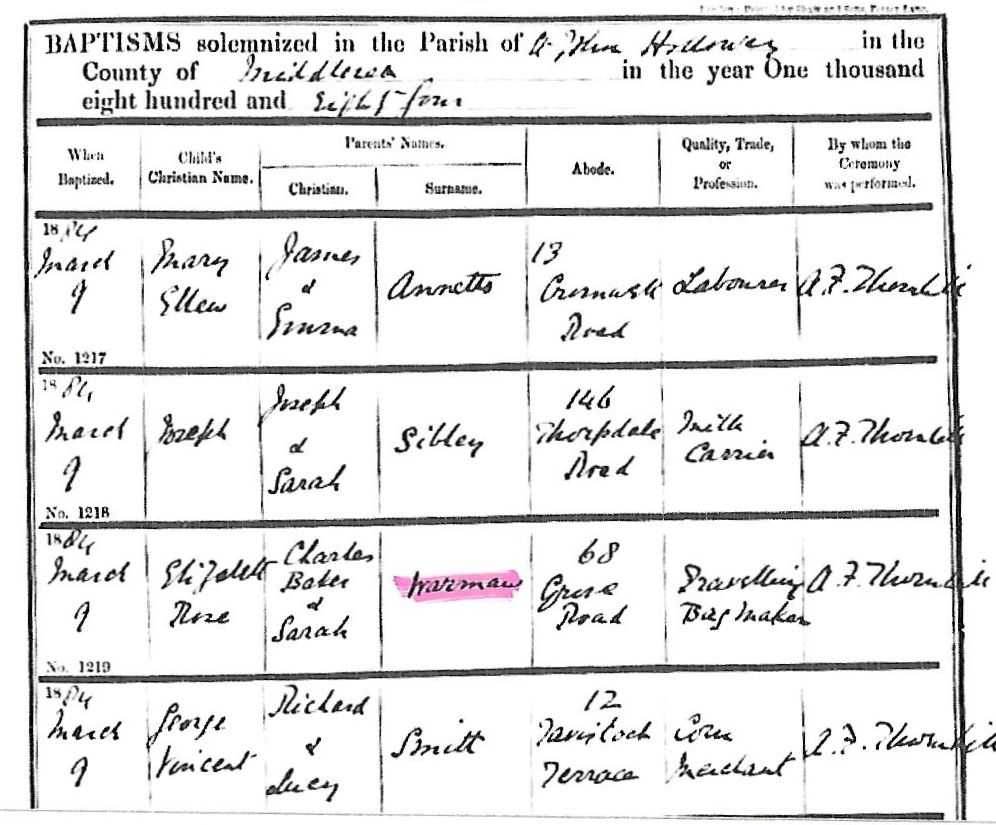 BAPTISMS solemnized in the Parish of St John Holloway in the
County of Middlesex in the year One thousand
eight hundred and Eighty four
When
Baptized.
Child's
Christian Name.
Parents' Names.
Christian.
Surname.
Abode.
Quality, Trade,
or
Profession.
By whom the
Ceremony
was performed.
1884
March
9
No. 1217
Mary
Ellen
James
&
Emma
Annetts
13
Road
Labourer
A.F. Thornhill
1884
March
9
No. 1218
Joseph
Joseph
&
Sarah
Sibley
146
Thorpdale
Road
Milk
Carrier
A.F. Thornhill
1884
March
9
No. 1219
Elizabeth
Rose
Charles
Baker
&
Sarah
Warman
68
Road
Travelling
Bag Maker
A.F. Thornhill
1884
March
9
George
Vincent
Richard
&
Lucy
Smith
12
Tavistock
Terrace
Corn
Merchant
A.F. Thornhill